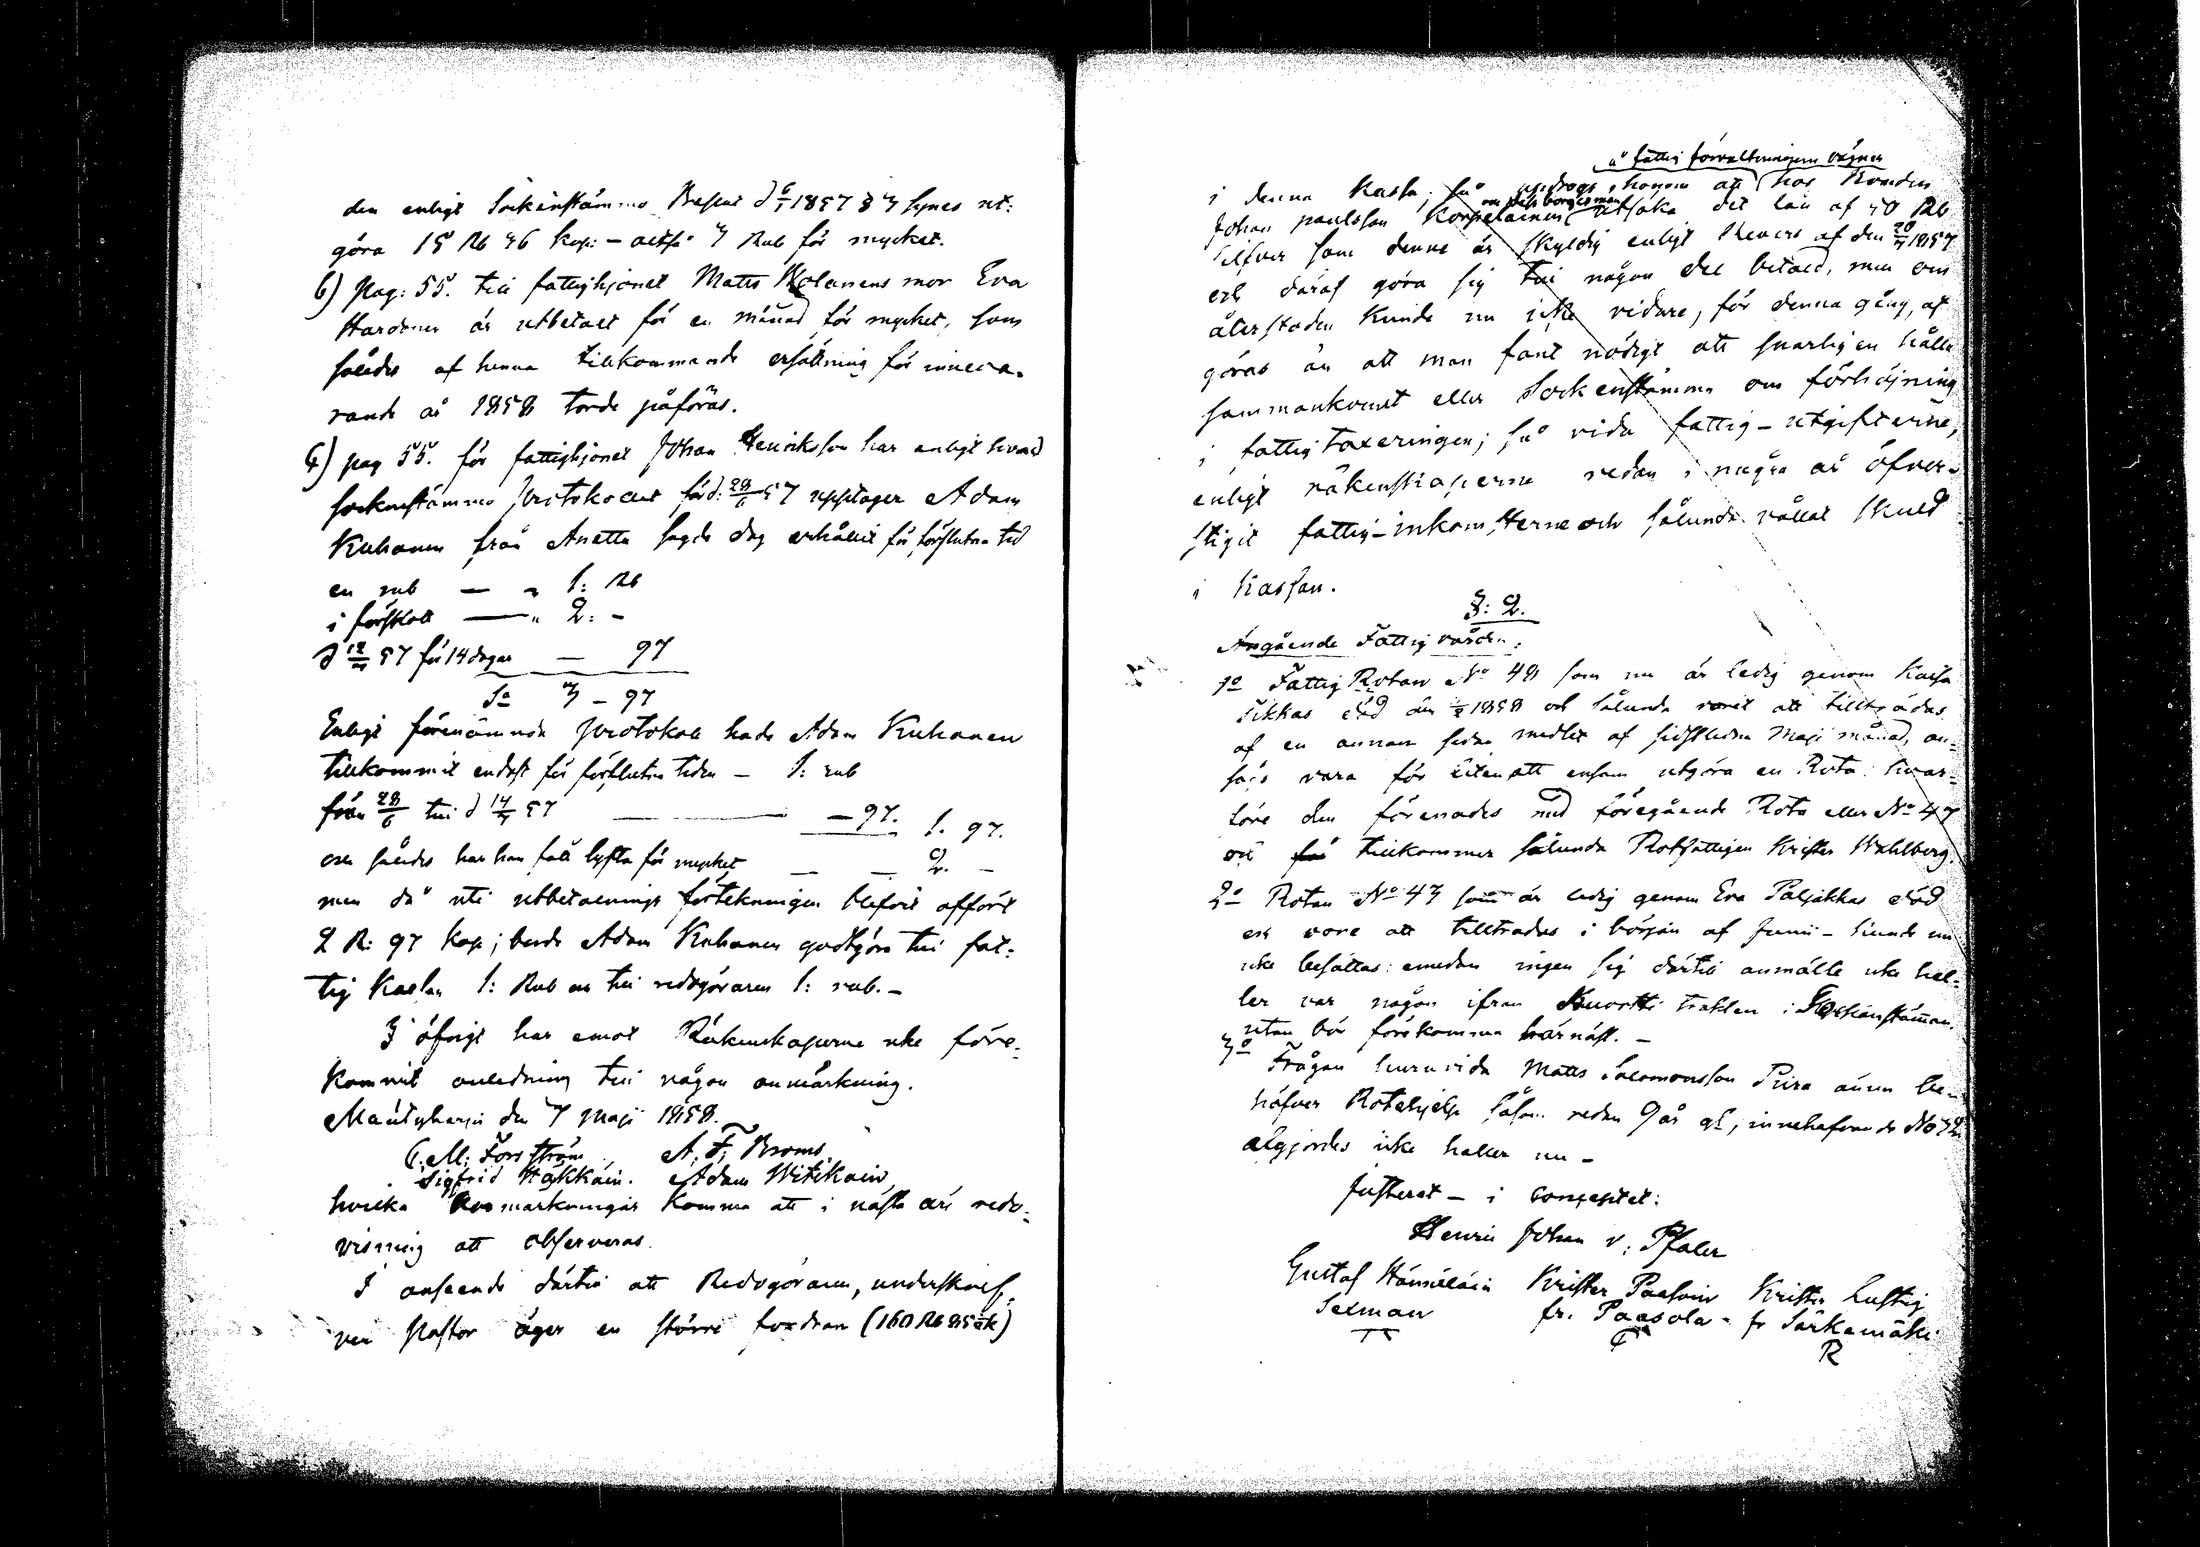 den enligt Sockenstämmo Beslut d 6/1 1857 § 3 synes ut:
göra 15 Rb 36 kop: – altså 3 Rub för mycket.
6) Pag: 55. till fattighjonet Matts Kolanens mor Eva
är utbetalt för en månad för mycket, som
således af henne tillkommande ersättning för inneva-
rande år 1858 torde påföras.
pag 55. för fattighjonet Johan Henriksson har enligt hvad
sockenstämmo Protokollet för d: 28/6 57 upptager Adam
Kuhanen från Anetta sagde dag erhållit för förflutna tid
en rub — " 1: Rb
i förskott — " 2: –
d 12/7 57 för 14 dagar — 97
Sa 3 – 97
Enligt förenämnda Protokoll hade Adam Kuhanen
tillkommit endast för förflutna tiden – 1: rub
från 28/6 till d 14/7 57 — – 97. 1. 97.
och således har han fått lyfta för mycket — — 2. –
men då uti utbetalnings förtekningen blifvit affört
2 R: 97 kop; borde Adam Kuhanen godtgöra till fat:
tig Kassan 1: Rub och till redogöraren 1: rub. –
I öfrigt har emot Räkenskaperne icke före-
kommit anledning till någon anmärkning.
Mäntyharju den 7 Maji 1858.
C. M. Forsström A. F. Broms
Sigfrid Häkkäin. Adam Witikain
hvilka anmärkningar komma att i nästa års redo-
visning att observeras.
I anseende därtill att Redogöraren, underskref-
ven Pastor äger en större fordran (160 Rb 85 k)
å fattig förvaltningens vägnar
i denna Kassa; så updrogs honom att hos Bonden
och dess borgesman
Johan Paulsson Korpelainen utsöka det lån af 50 Rb
Silfver som denne är skyldig enligt Revers af den 20/7 1857
och däraf göra sig till någon del betald, men om
återstoden kunde nu icke vidare, för denna gång, af
göras än att man fant nödigt att snarligen hålla
sammankomst eller Sockenstämma om förhöjning
i fattig taxeringen; så vida fattig-utgifterne,
enligt räkenskaperne redan i några år öfver-
stigit fattig-inkomsterne och sålunda vållat skuld
i Kassan.
§: 2.
Angående Fattigvården:
1o Fattig Rotan No 48 som nu är ledig genom Kaisa
Tikkas död den 1858 och sålunda varit att tillträdas
af en annan sedan medlet af sidstledne Maji månad, an-
sågs vara för liten att ensam utgöra en Rota: hvar-
före den förenades med föregående Rota eller No 47
och tillkommer sålunda Rotfattigen Krister Wahlberg.
2o Rotan No 43 som är ledig genom Eva Paljakkas död
och vore att tillträdas i början af Junii – kunde nu
icke besättas: emedan ingen sig därtill anmälte icke hel-
ler var någon ifrån Kuortti trakten i Sockenstämman,
utan bör förekomma härnäst. –
3o Frågan huruvida Matts Salomonsson Piira ännu be-
höfver Rotehjelp såsom redan 9 år gl, innehafvande No 32
afgjordes icke heller nu –
Justerat – i conceptet:
Henric Johan v: Pfaler
Gustaf Hämäläin Krister Paasoin Krister Lustig
Selman fr. Paasola – fr Särkemäki